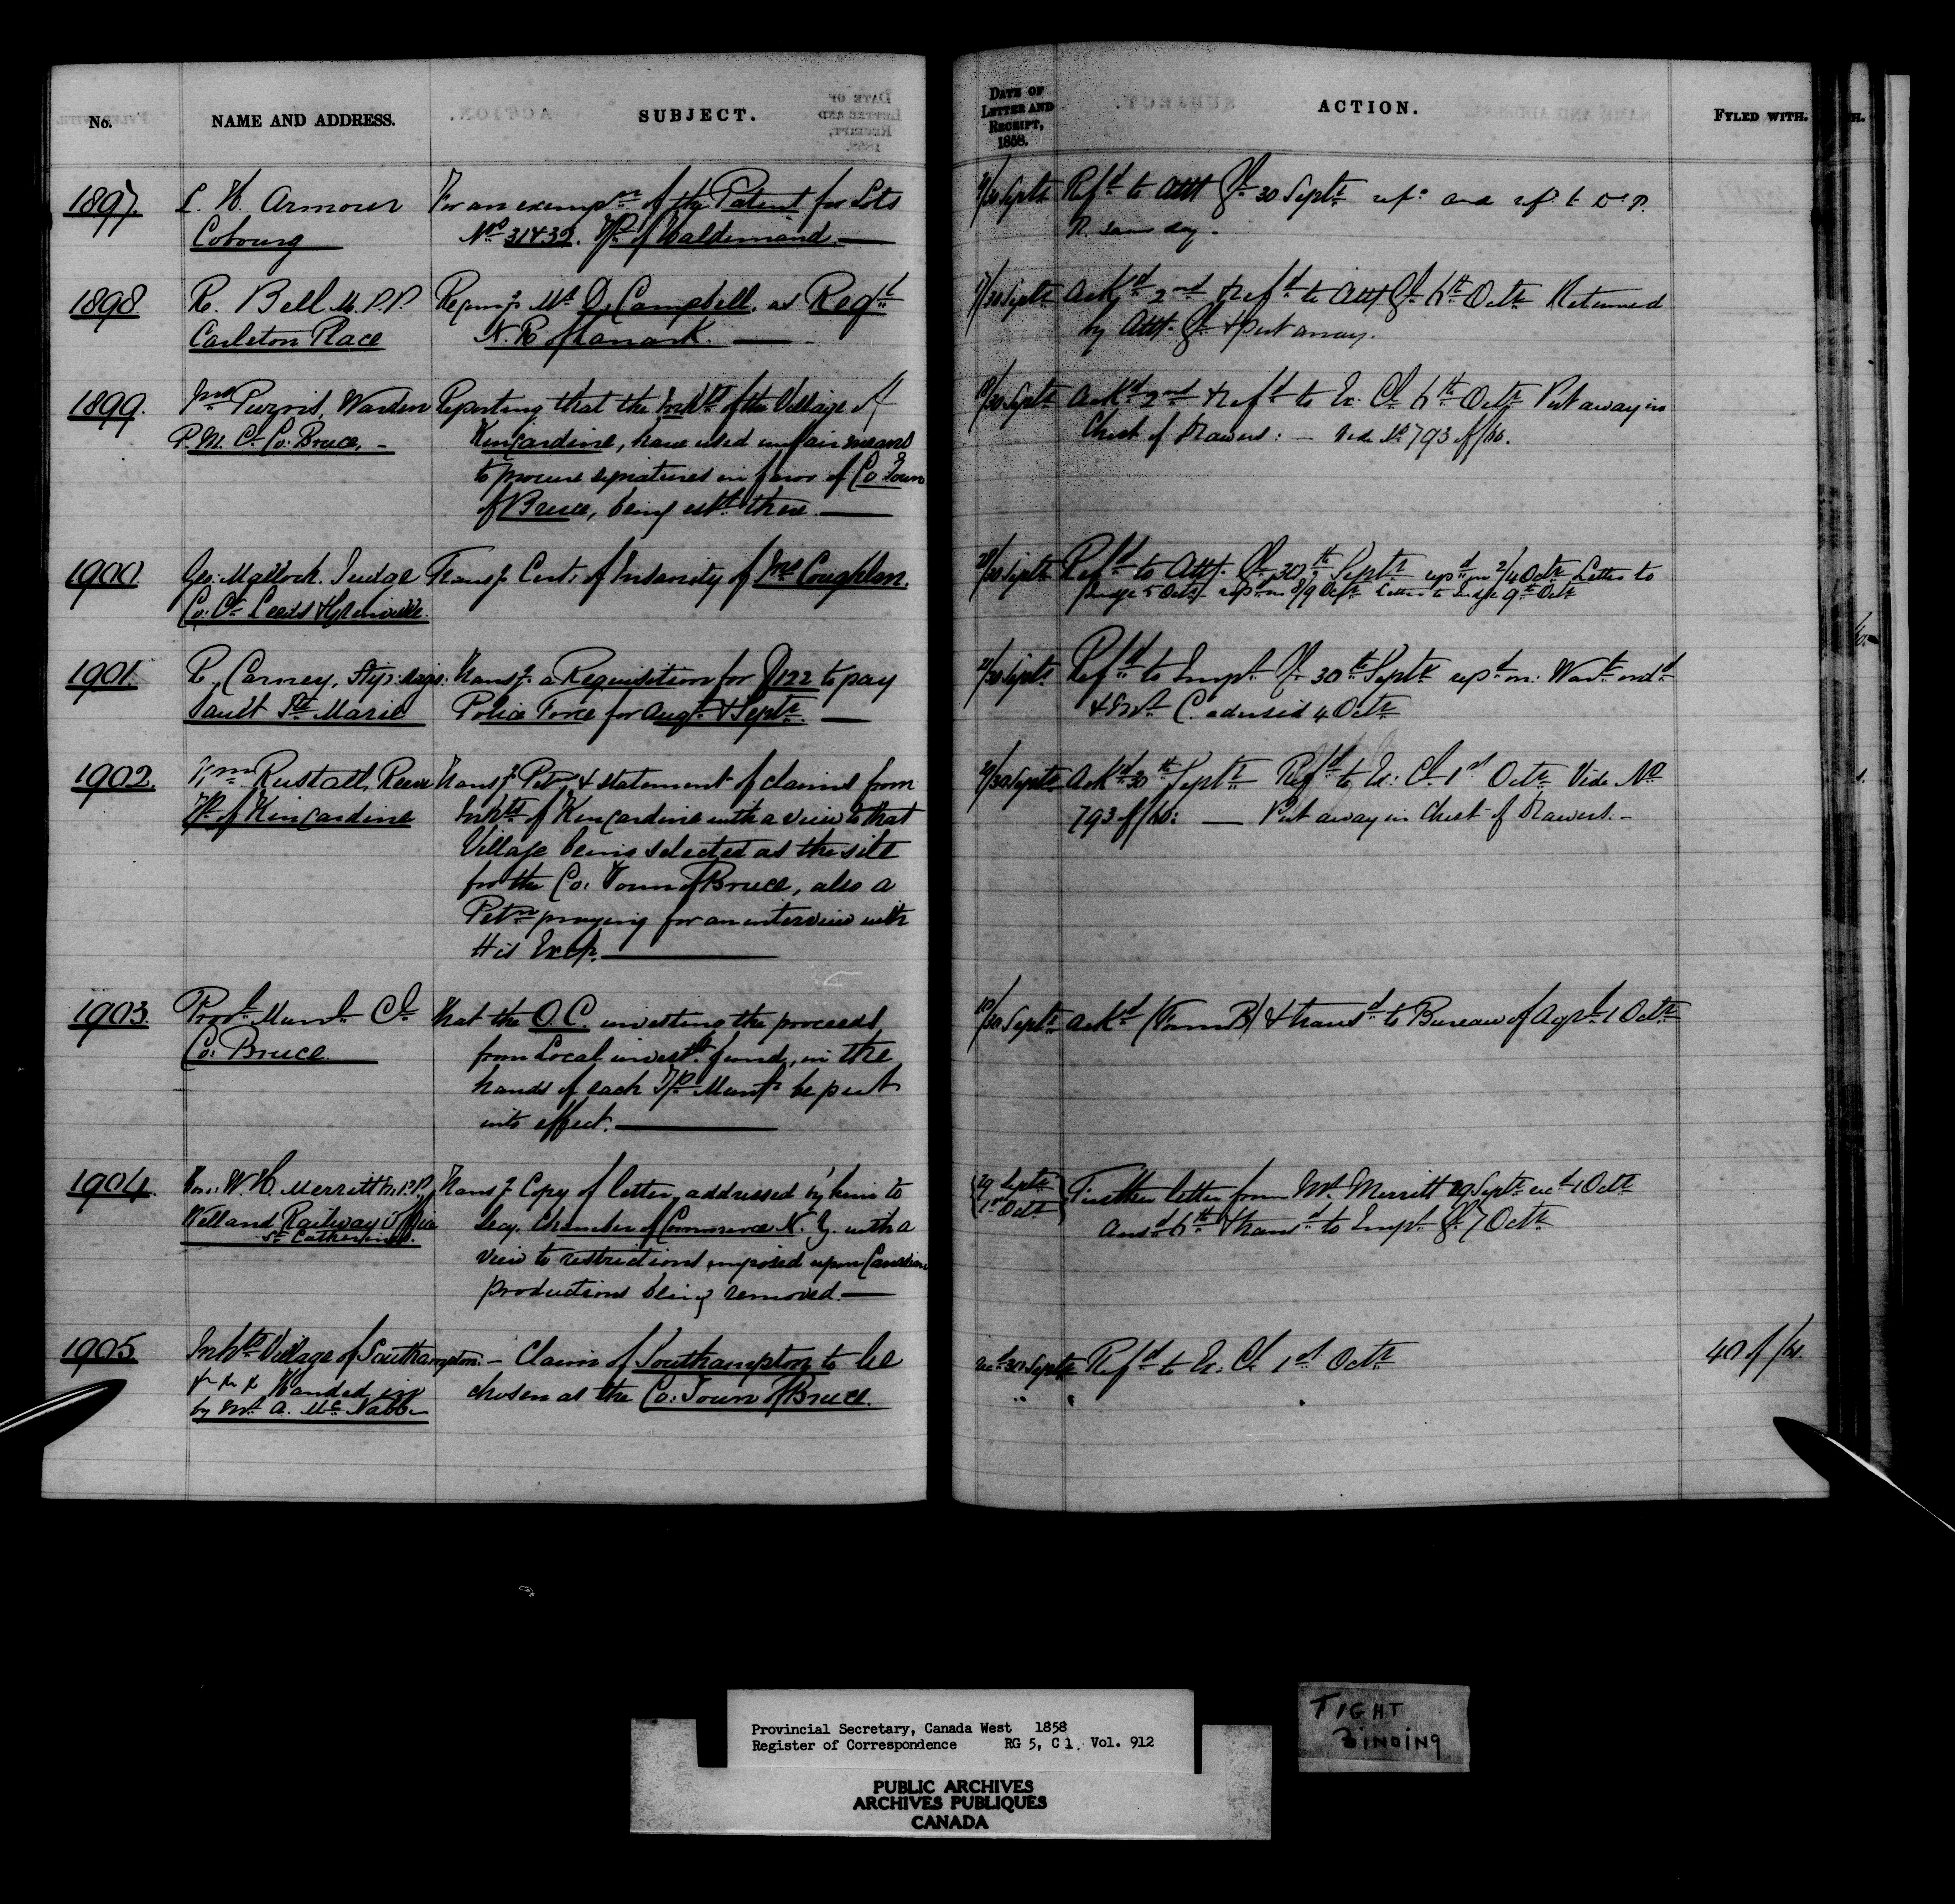 No.
NAME AND ADDRESS.
SUBJECT.
DATE OF
LETTER AND
RECEIPT,
1858.
ACTION.
FYLED WITH.
1897.
Armour
Cobourg
For an exempn of the Patent for Lots
No 31 & 32.
30 Septr
Refd to Atty Gl 30 Septr
1898.
R. Bell M.P.P.
Carleton Place
Mr D. Campbell, as Regr
N. R of Lanark.
30 Septr
Ackd 2nd & Refd to Atty Gl 6th Octr Returned
by Atty Gl & Put away.
1899.
Warden
P. M. Cl Co: Bruce, -
Reporting that the Inhts of the Village of
Kincardine, have used unfair means
to procure signatures in favor of Co: Town
of Bruce, being estd there.
30 Septr
Ackd 2nd & Refd to Ex: Cl 6th Octr Put away in
Chest of Drawers: — Vide No 793 of/
1900.
Geo: Malloch. Judge
Co: Ct Leeds & Grenville.
Transg Cert: of Insanity of Coughlan.
30 Septr
Refd to Atty. Gl 30th Septr repd on 2/4 Octr Letter to
Judge 5 Octr repd on 8/9 Octr Letter to Judge 9th Octr
1901.
Carney, Stip: Magis:
Sault Ste Marie
Transg a Requisition for $122 to pay
Police Force for Augt & Septr.
30 Septr
Refd to Inspr Gl 30th Septr repd on: Wart
& Mr C. advised 4 Octr
1902.
Wm Rastall, Reeve
Tp of Kincardine
Transg Petn & statement of claims from
Inhts of Kincardine with a view to that
Village being selected as the site
for the Co: Town of Bruce, also a
Petn praying for an interview with
His Excy.
30 Septr
Ackd 30th Septr Refd to Ex: Cl 1st Octr Vide No
793 of/ — Put away in Chest of Drawers. -
1903.
Provl Munl Cl
Co: Bruce.
That the O.C. investing the proceeds
from Local invest. fund, in the
hands of each Tp Munty be put
into effect.
30 Septr
Ackd (Form B) & transd to Bureau of Agre 1 Octr
1904.
Hon: W. H. Merritt M.P.P.
Welland Railway Office
St Catherines.
Transg Copy of letter, addressed by him to
Secy. Chamber of Commerce N. Y. with a
view to restrictions imposed upon Canadian
productions being removed.
29 Septr
1st Octr
Further letter from Mr Merritt 29 Septr recd 1 Octr
Ansd 6th & transd to Inspr Gl 7 Octr
1905.
Inhts Village of Southampton. - Claim of Southampton to be
Handed in
by Mr A. McNabb
chosen as the Co: Town of Bruce.
recd 30 Septr
Refd to Ex: Cl 1st Octr
40 of/
Provincial Secretary, Canada West 1858
Register of Correspondence RG 5, C 1, Vol. 912
PUBLIC ARCHIVES
ARCHIVES PUBLIQUES
CANADA
TIGHT
BINDING